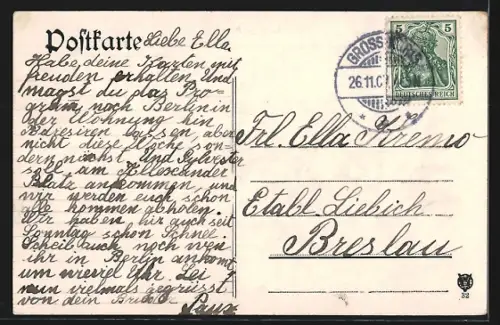 Postkarte
Liebe Ella.
Habe deine Karten mit
freuden erhalten und
magst du das Pro-
gram nach Berlin in
der Wohnung hin
adresiren lassen, aber
nicht diese Woche son-
dern nächst. Und Sylvester
soll am Allexander
Platz ankommen, und
wir werden euch schon
alle kommen abholen.
Wir haben hir auch seit
Sonntag schon Schnee.
Scheib auch noch wen
ihr in Berlin ankomt
um wieviel Uhr. Sei
nun vielmals gegrüsst
von dein Bruder
Paul
GROSS
26.11.0
5 5
DEUTSCHES REICH
Frl. Ella Kremo
Etabl. Liebich
Breslau
32